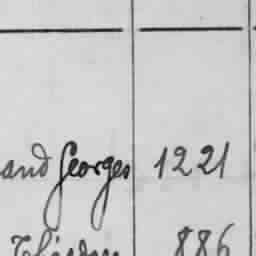 and Georges 1221
886